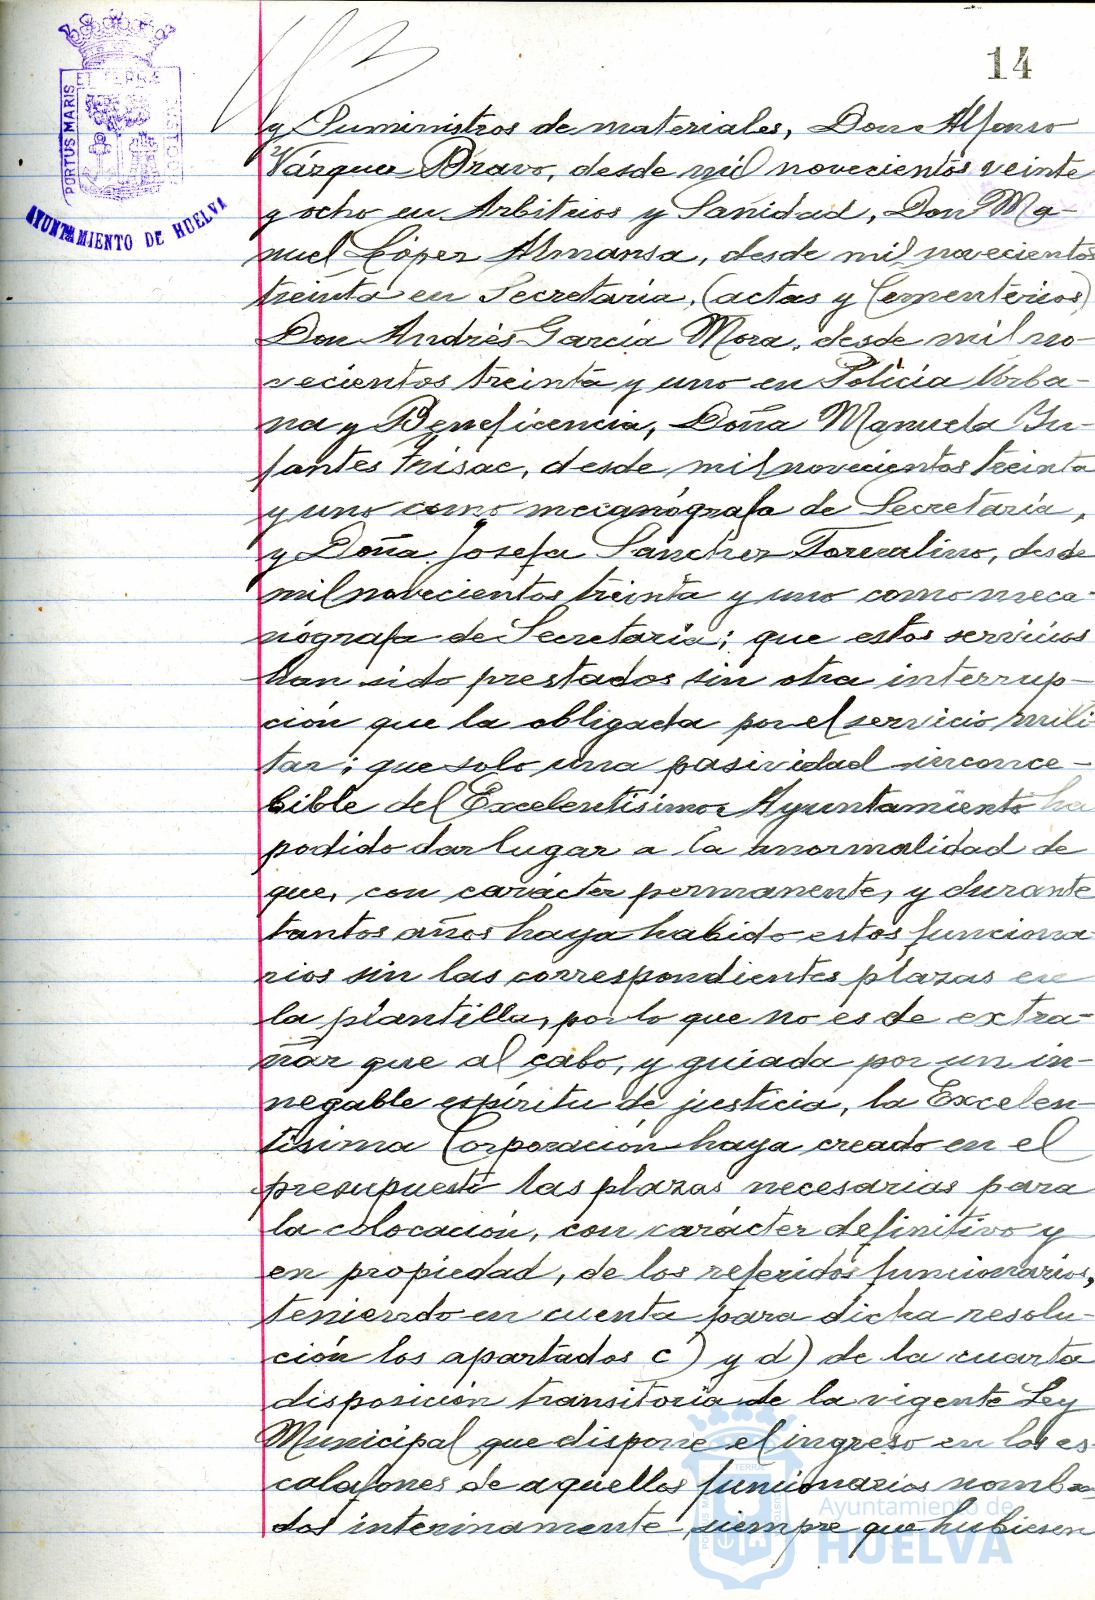 14
PORTUS MARIS
ET TERRÆ
CUSTODIA
AYUNTAMIENTO DE HUELVA
y Suministros de materiales, Don Alfonso
Vázquez Bravo, desde mil novecientos veinte
y ocho en Arbitrios y Sanidad, Don Ma-
nuel López Almansa, desde mil novecientos
treinta en Secretaria, (actas y Cementerios)
Don Andrés García Mora, desde mil no-
vecientos treinta y uno en Policía Urba-
na y Beneficencia, Doña Manuela In-
fantes Frisac, desde mil novecientos treinta
y uno como mecanógrafa de Secretaría,
y Doña Josefa Sanchez Toscalino, desde
mil novecientos treinta y uno como meca-
nógrafa de Secretaria; que estos servicios
han sido prestados sin otra interrup-
ción que la obligada por el servicio mili-
tar; que solo una pasividad inconce-
bible del Excelentísimo Ayuntamiento ha
podido dar lugar a la anormalidad de
que, con carácter permanente, y durante
tantos años haya habido estos funciona-
rios sin las correspondientes plazas en
la plantilla, por lo que no es de extra-
ñar que al cabo, y guiada por un in-
negable espíritu de justicia, la Excelen-
tísima Corporación haya creado en el
presupuesto las plazas necesarias para
la colocación, con carácter definitivo y
en propiedad, de los referidos funcionarios,
teniendo en cuenta para dicha resolu-
ción los apartados c) y d) de la cuarta
disposición transitoria de la vigente Ley
Municipal que dispone el ingreso en los es-
calafones de aquellos funcionarios nombra-
dos interinamente, siempre que hubiesen
Ayuntamiento de
HUELVA